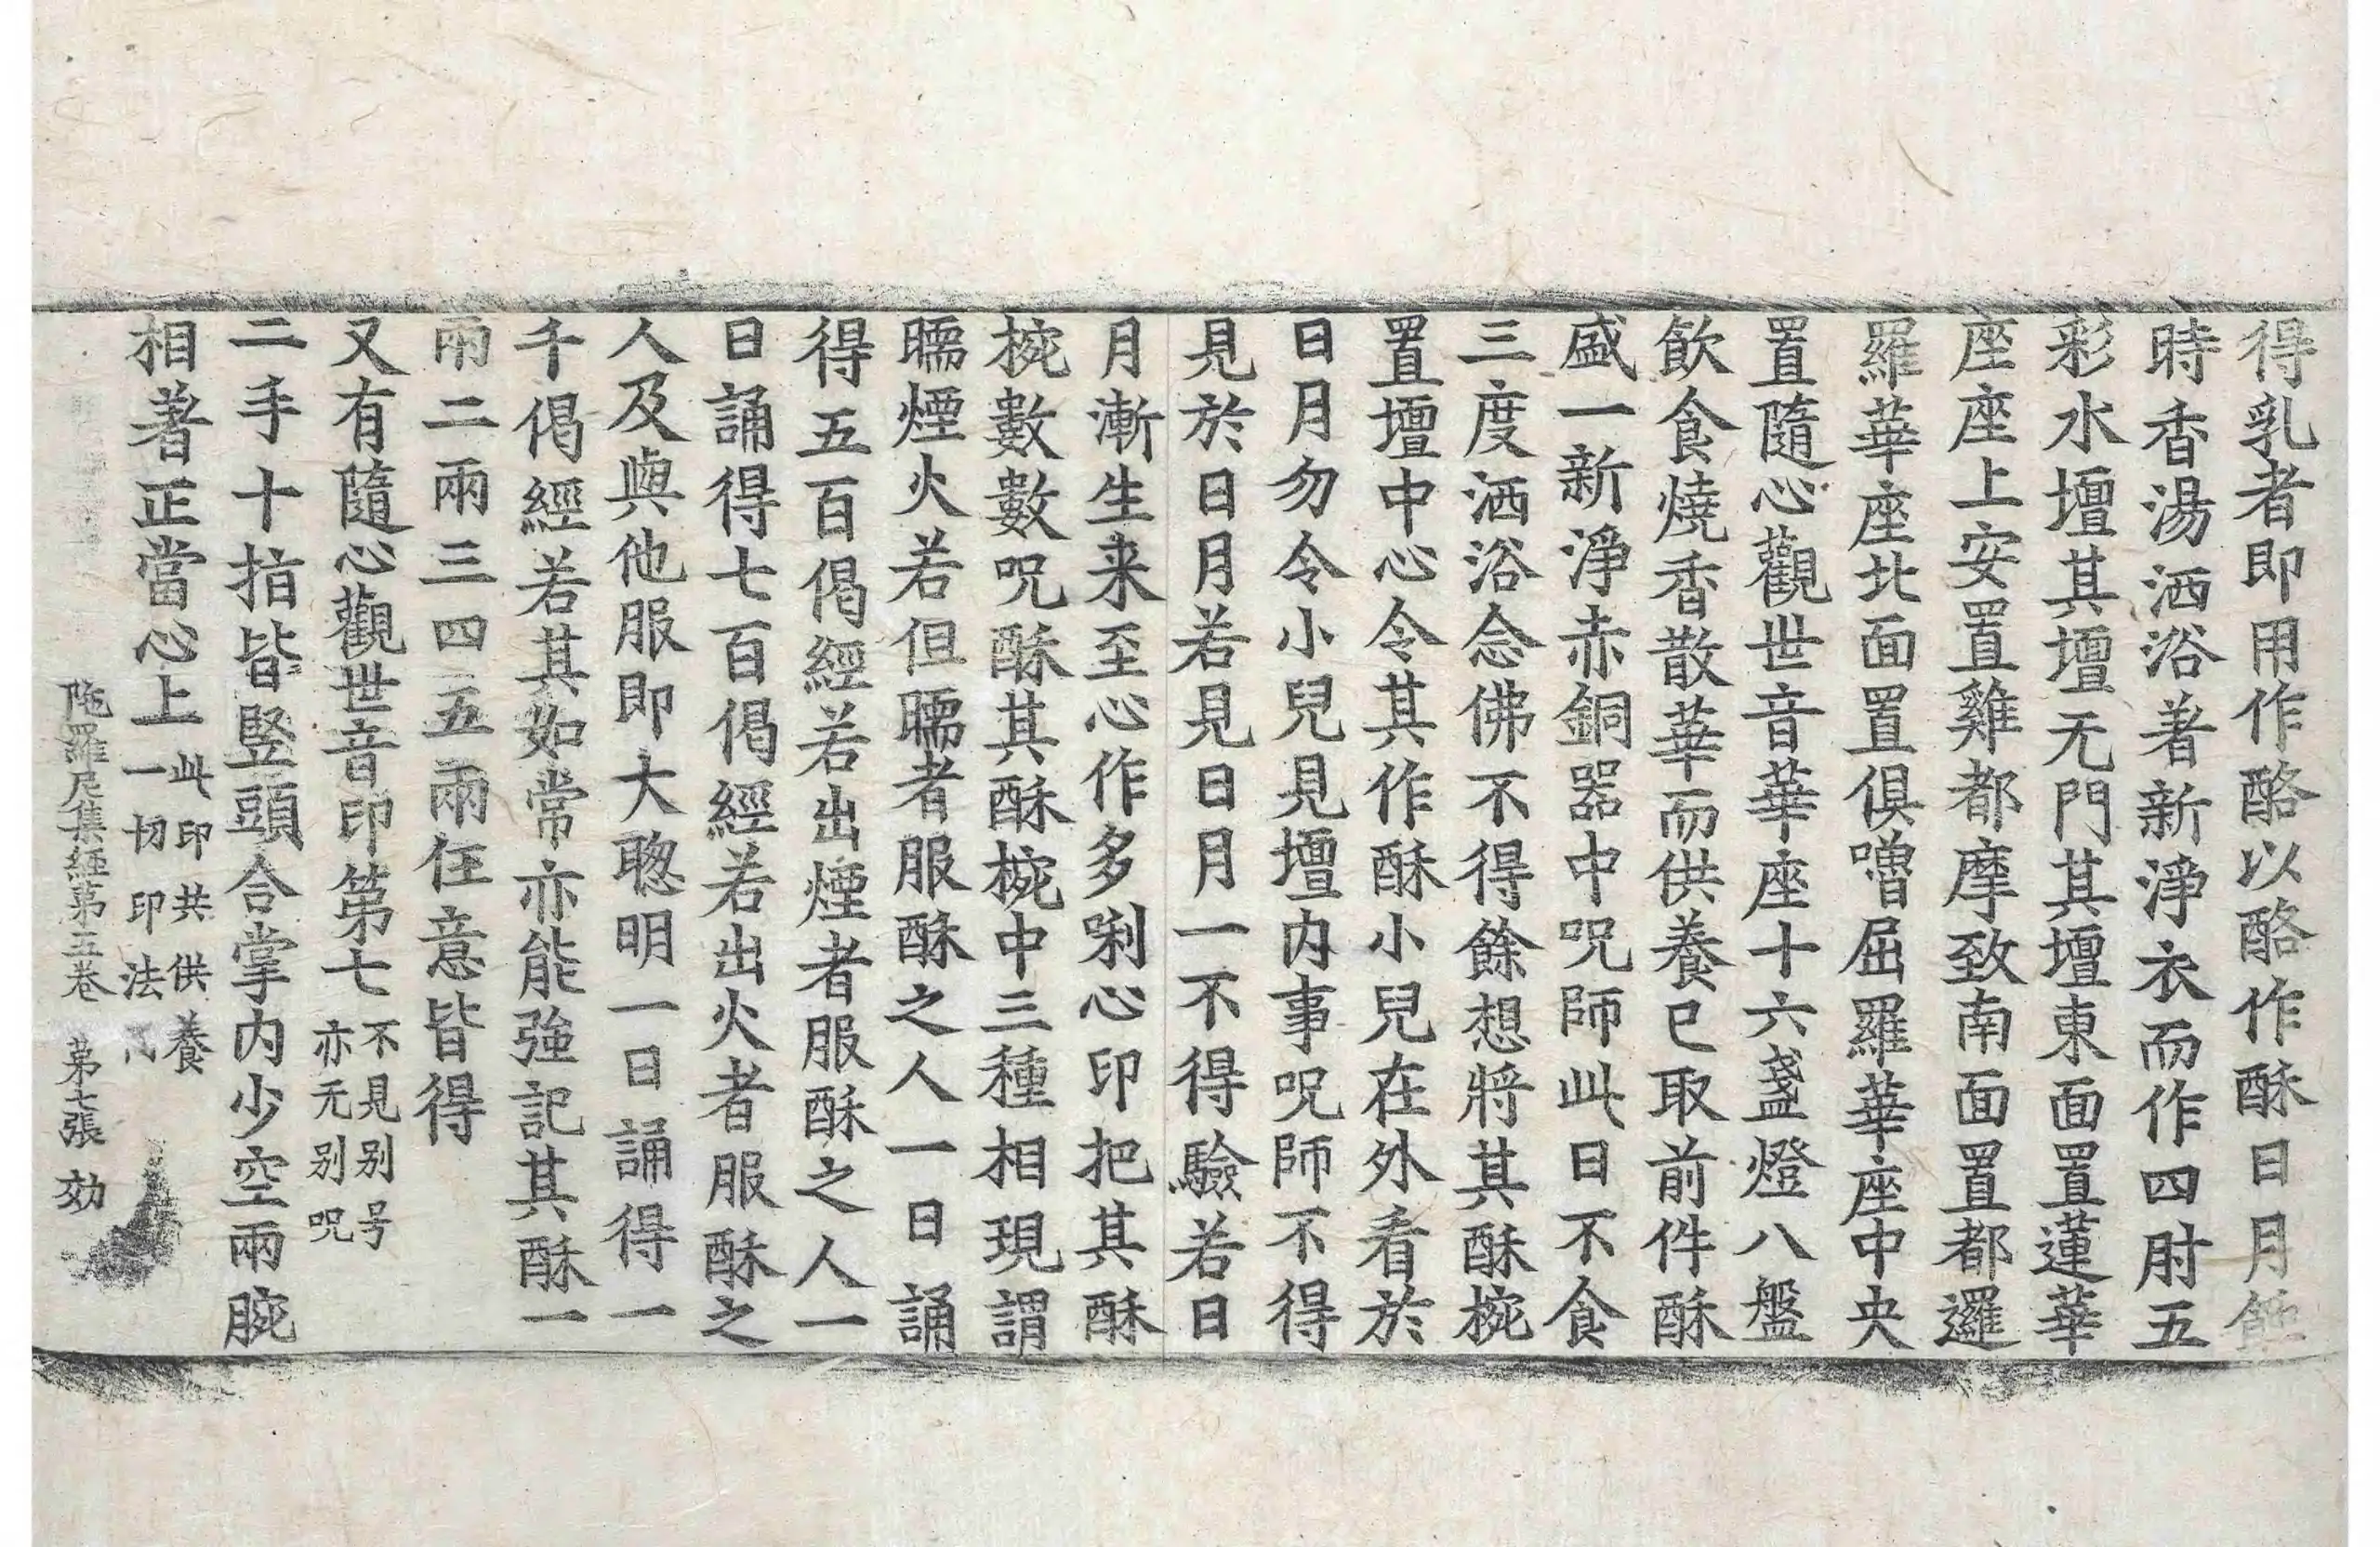 得乳者即用作酪以酪作酥日月蝕
時香湯洒浴著新淨衣而作四肘五
彩水壇其壇无門其壇東面置蓮華
座座上安置雞都摩致南面置都邏
羅華座北面置俱噌屈羅華座中央
置隨心觀世音華座十六盞燈八盤
飲食燒香散華而供養已取前件酥
盛一新淨赤銅器中呪師此日不食
三度洒浴念佛不得餘想將其酥椀
置壇中心令其作酥小兒在外看於
日月勿令小兒見壇內事呪師不得
見於日月若見日月一不得驗若日
月漸生来至心作多唎心印把其酥
椀數數呪酥其酥椀中三種相現謂
㬉煙火若但㬉者服酥之人一日誦
得五百偈經若出煙者服酥之人一
日誦得七百偈經若出火者服酥之
人及與他服即大聦明一日誦得一
千偈經若其如常亦能強記其酥一
兩二兩三四五兩任意皆得
又有隨心觀世音印第七不見別号亦无別呪
二手十指皆竪頭合掌內少空兩腕
相著正當心上此印共供養一切印法
陁羅尼集經第五卷 第七張 効